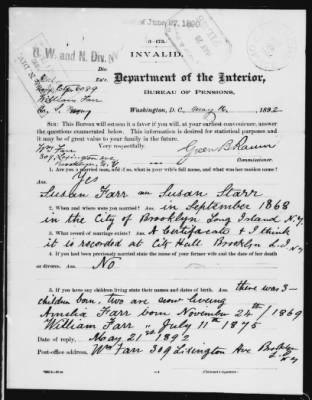 of June 27, 1890
INVALID.
O. W. and N. Div.
Department of the Interior,
BUREAU OF PENSIONS,
William Farr
U. S. Navy
Washington, D. C., May 16, 1892
SIR: This Bureau will esteem it a favor if you will, at your earliest convenience, answer
the questions enumerated below. This information is desired for statistical purposes and
it may be of great value to your family in the future.
Very respectfully,
Wm Farr
309 Lexington Ave
Brooklyn, N.Y.
Green B Raum
Commissioner.
1. Are you a married man, and if so, what is your wife's full name, and what was her maiden name?
Ans. Yes
Susan Farr Susan Starr
2. When and where were you married? Ans. in September 1868
in the City of Brooklyn Long Island N.Y.
3. What record of marriage exists? Ans. A Certificate & I think
it is recorded at City Hall Brooklyn L.I. N.Y.
4. If you had been previously married state the name of your former wife and the date of her death
or divorce. Ans. No
5. If you have any children living state their names and dates of birth. Ans. there was 3
children born, two are now liveing
Amelia Farr born November 24th / 1869
William Farr " July 11th 1875
Date of reply, May 21st 1892
Post-office address, Wm Farr 309 Lexington Ave Brooklyn
L.I. N.Y.